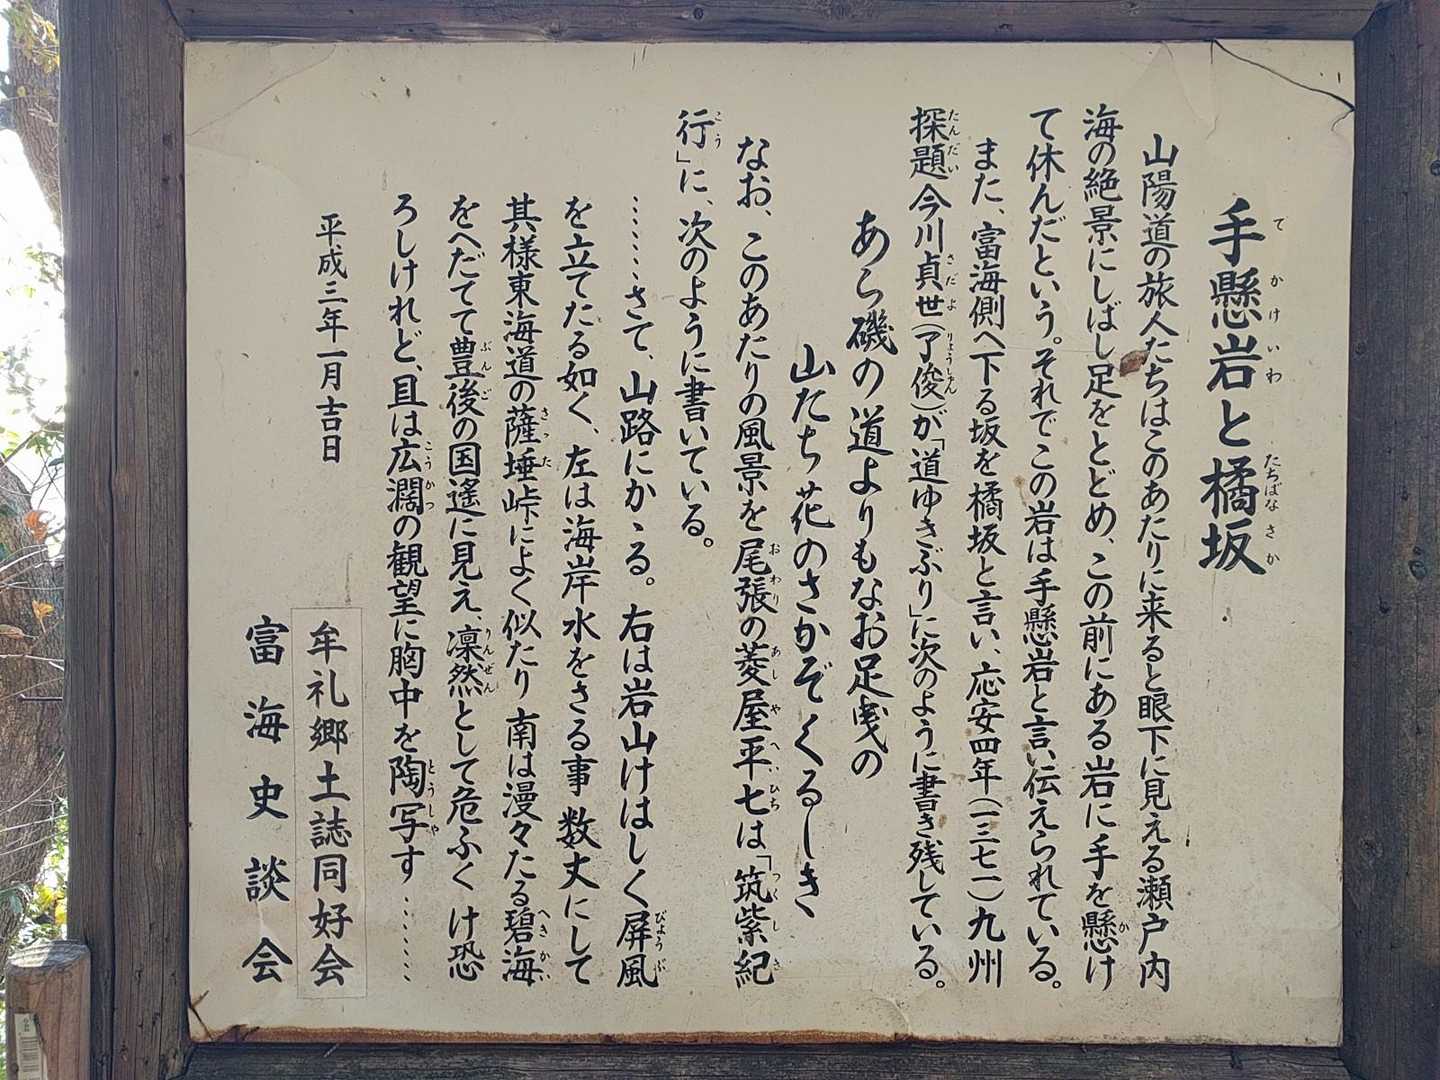 手懸岩と橘坂
山陽道の旅人たちはこのあたりに来ると眼下に見える瀬戸内
海の絶景にしばし足をとどめ、この前にある岩に手を懸け
て休んだという。それでこの岩は手懸岩と言い伝えられている。
また、富海側へ下る坂を橘坂と言い、応安四年(一三七一)九州
探題今川貞世(了俊)が「道ゆきぶり」に次のように書き残している。
あら磯の道よりもなお足曳の
山たち花のさかぞくるしき
なお、このあたりの風景を尾張の菱屋平七は「筑紫紀
行」に、次のように書いている。
……さて、山路にかゝる。右は岩山けはしく屏風
を立てたる如く、左は海岸水をさる事数丈にして
其様東海道の薩埵峠によく似たり南は漫々たる碧海
をへだてて豊後の国遙に見え、凛然として危ふくけ恐
ろしけれど、且は広濶の観望に胸中を陶写す……
平成三年一月吉日
牟礼郷土誌同好会
富海史談会